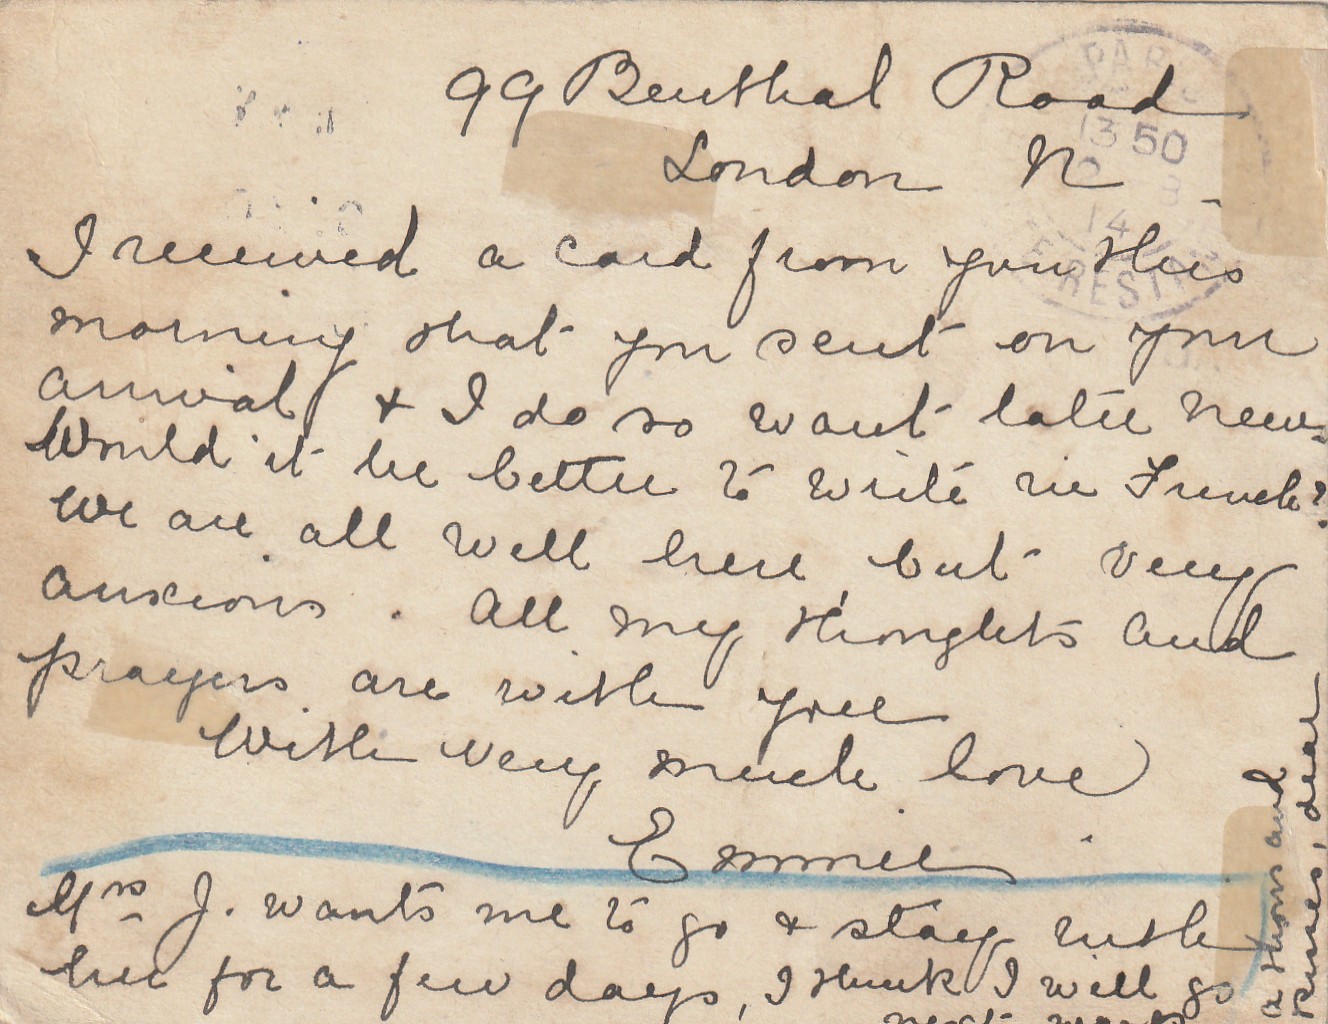 99 Benthal Road
London N
I received a card from you this
morning that you sent on your
arrival & I do so want later news.
Would it be better to write in French?
We are all well here, but very
anxious. All my thoughts and
prayers are with you
With very much love
Emmie
Mrs J. wants me to go & stay with
her for a few days, I think I will go
next week
a thousand
kisses, dear
PARIS
13 50
14
ETRESTR